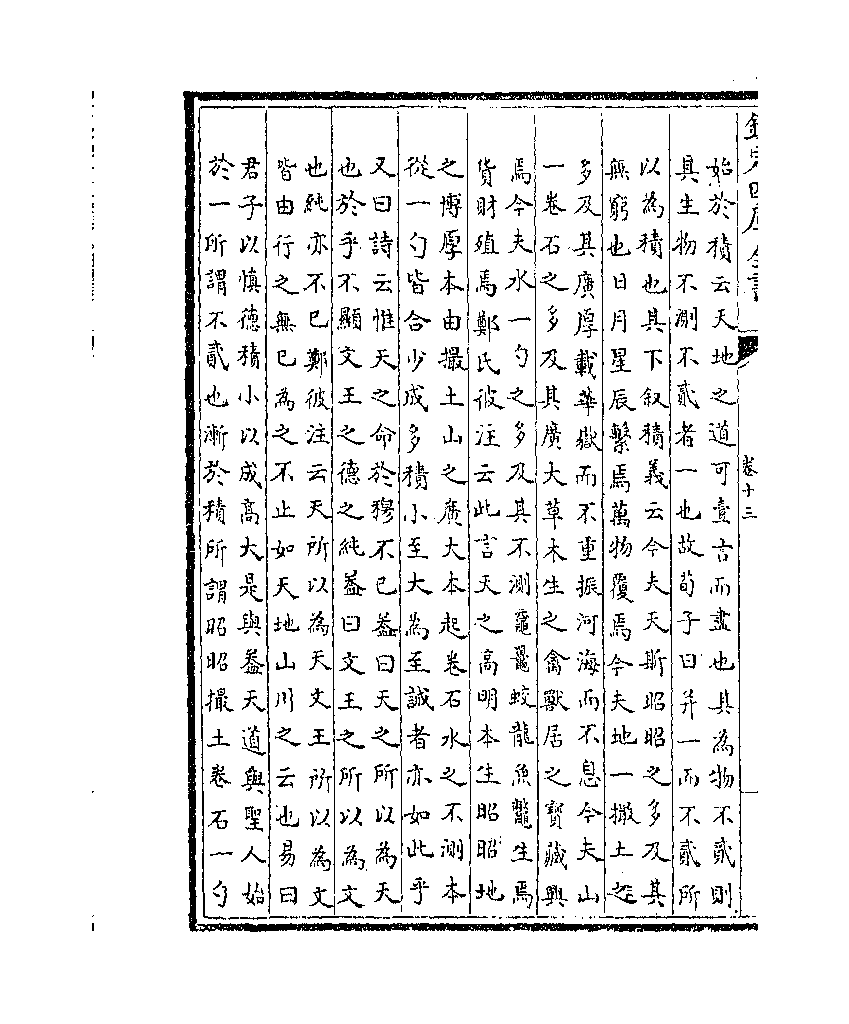 欽定四庫全書
卷十三
始於積云天地之道可壹言而盡也其為物不貳則
其生物不測不貳者一也故荀子曰并一而不貳所
以為積也其下叙積義云今夫天斯昭昭之多及其
無窮也日月星辰繫焉萬物覆焉今夫地一撮土之
多及其廣厚載華嶽而不重振河海而不息今夫山
一卷石之多及其廣大草木生之禽獸居之寶藏興
焉今夫水一勺之多及其不測黿鼉蛟龍魚鼈生焉
貨財殖焉鄭氏彼注云此言天之高明本生昭昭地
之博厚本由撮土山之廣大本起卷石水之不測本
從一勺皆合少成多積小至大為至誠者亦如此乎
又曰詩云惟天之命於穆不已葢曰天之所以為天
也於乎不顯文王之德之純葢曰文王之所以為文
也純亦不已鄭彼注云天所以為天文王所以為文
皆由行之無已為之不止如天地山川之云也易曰
君子以慎德積小以成高大是與葢天道與聖人始
於一所謂不貳也漸於積所謂昭昭撮土卷石一勺